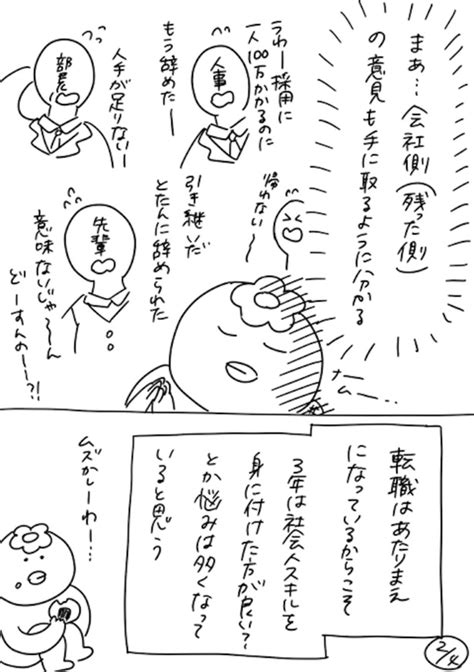 まぁ…会社側(残った側)
の意見も手に取るように分かる
うわー採用に
一人100万かかるのに
もう辞めたー
人事
人手が足りないー
部長
帰わない〜
引き継いだ
とたんに辞められた
先輩
意味ないじゃ〜ん
どーすんのー?!
ナー
ムー…
転職はあたりまえ
になっているからこそ
3年は社会人スキルを
身に付けた方が良い?
とか悩みは多くなって
いると思う
ムズかしーわー…
2/4